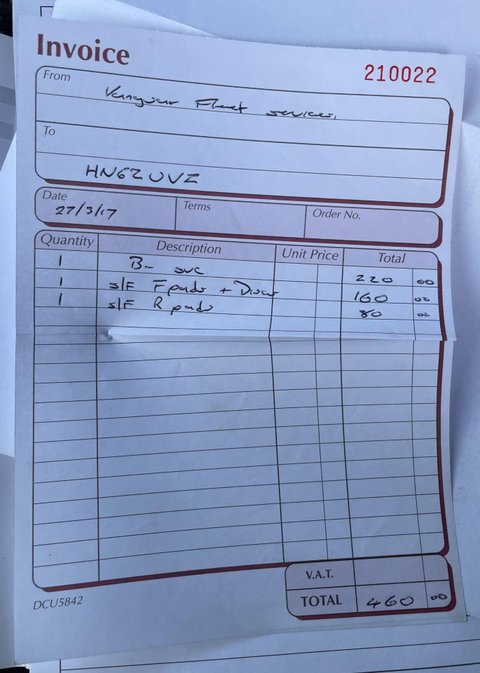 Invoice
210022
From
Fleet services.
To
HN62 UVZ
Date
27/3/17
Terms
Order No.
Quantity Description Unit Price Total
1 B- svc 220 00
1 s/F F pads + Discs 160 00
1 s/F R pads 80 00
V.A.T.
TOTAL 460 00
DCU5842